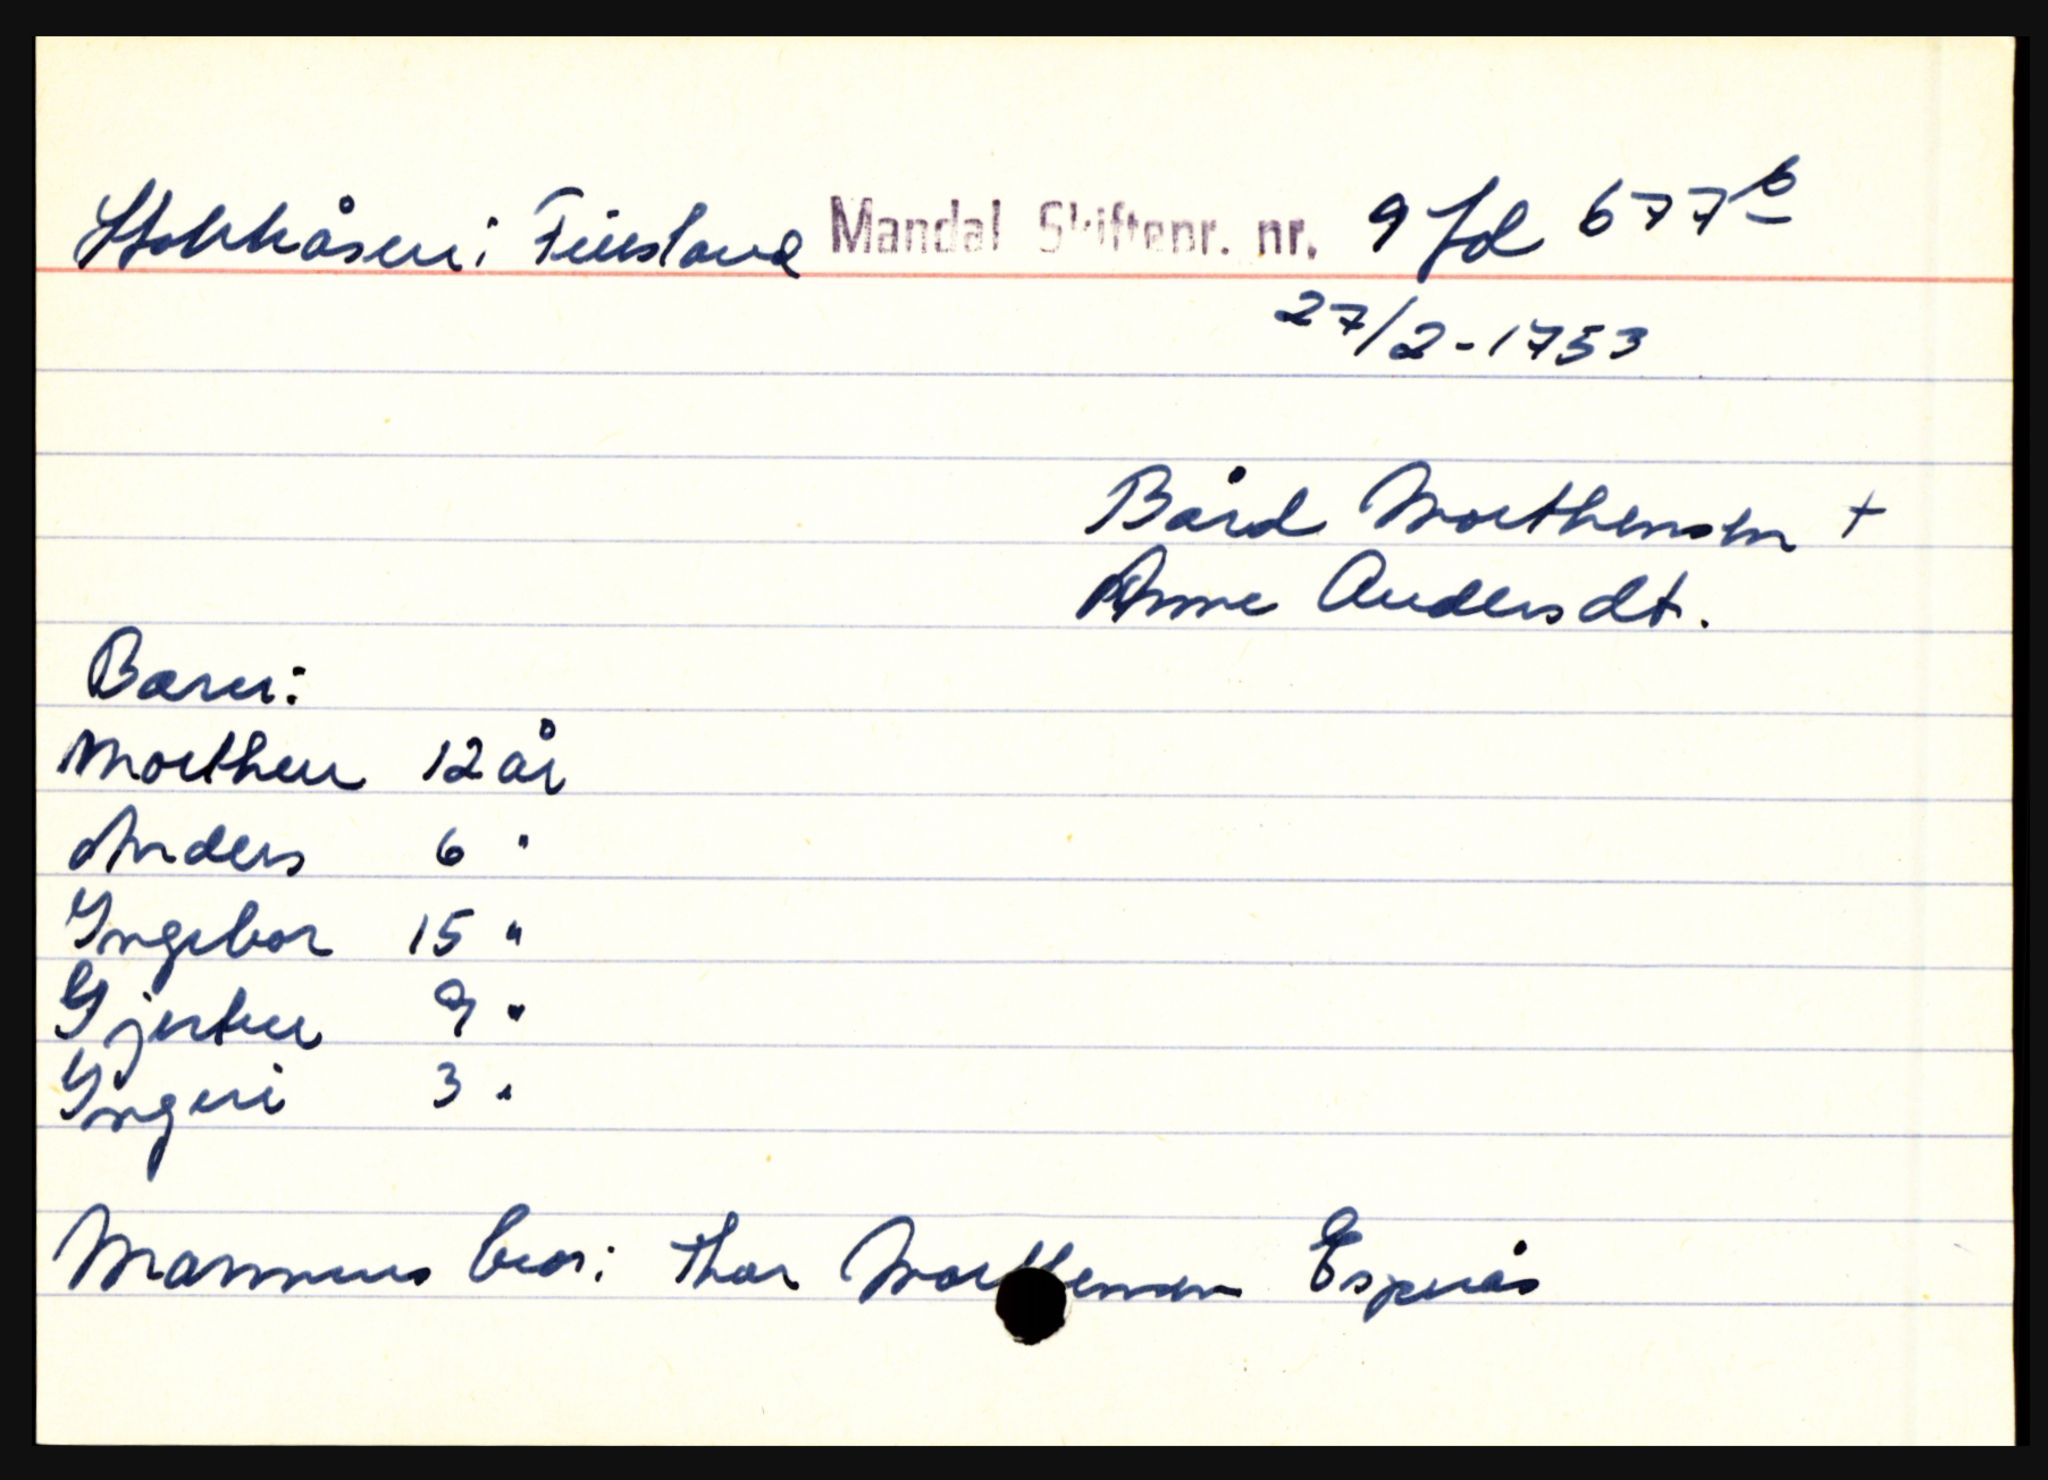 Stokkåsen i Finsland Mandal Skiftepr. nr. 9 fol 677 b
27/2-1753
Bård Morthensen +
Anne Andersdt.
Barn:
Morthen 12 år
Anders 6 "
Ingebor 15 "
Gjerten 9 "
Ingeri 3 "
Mannens bror: Thor Morthensen Espeås